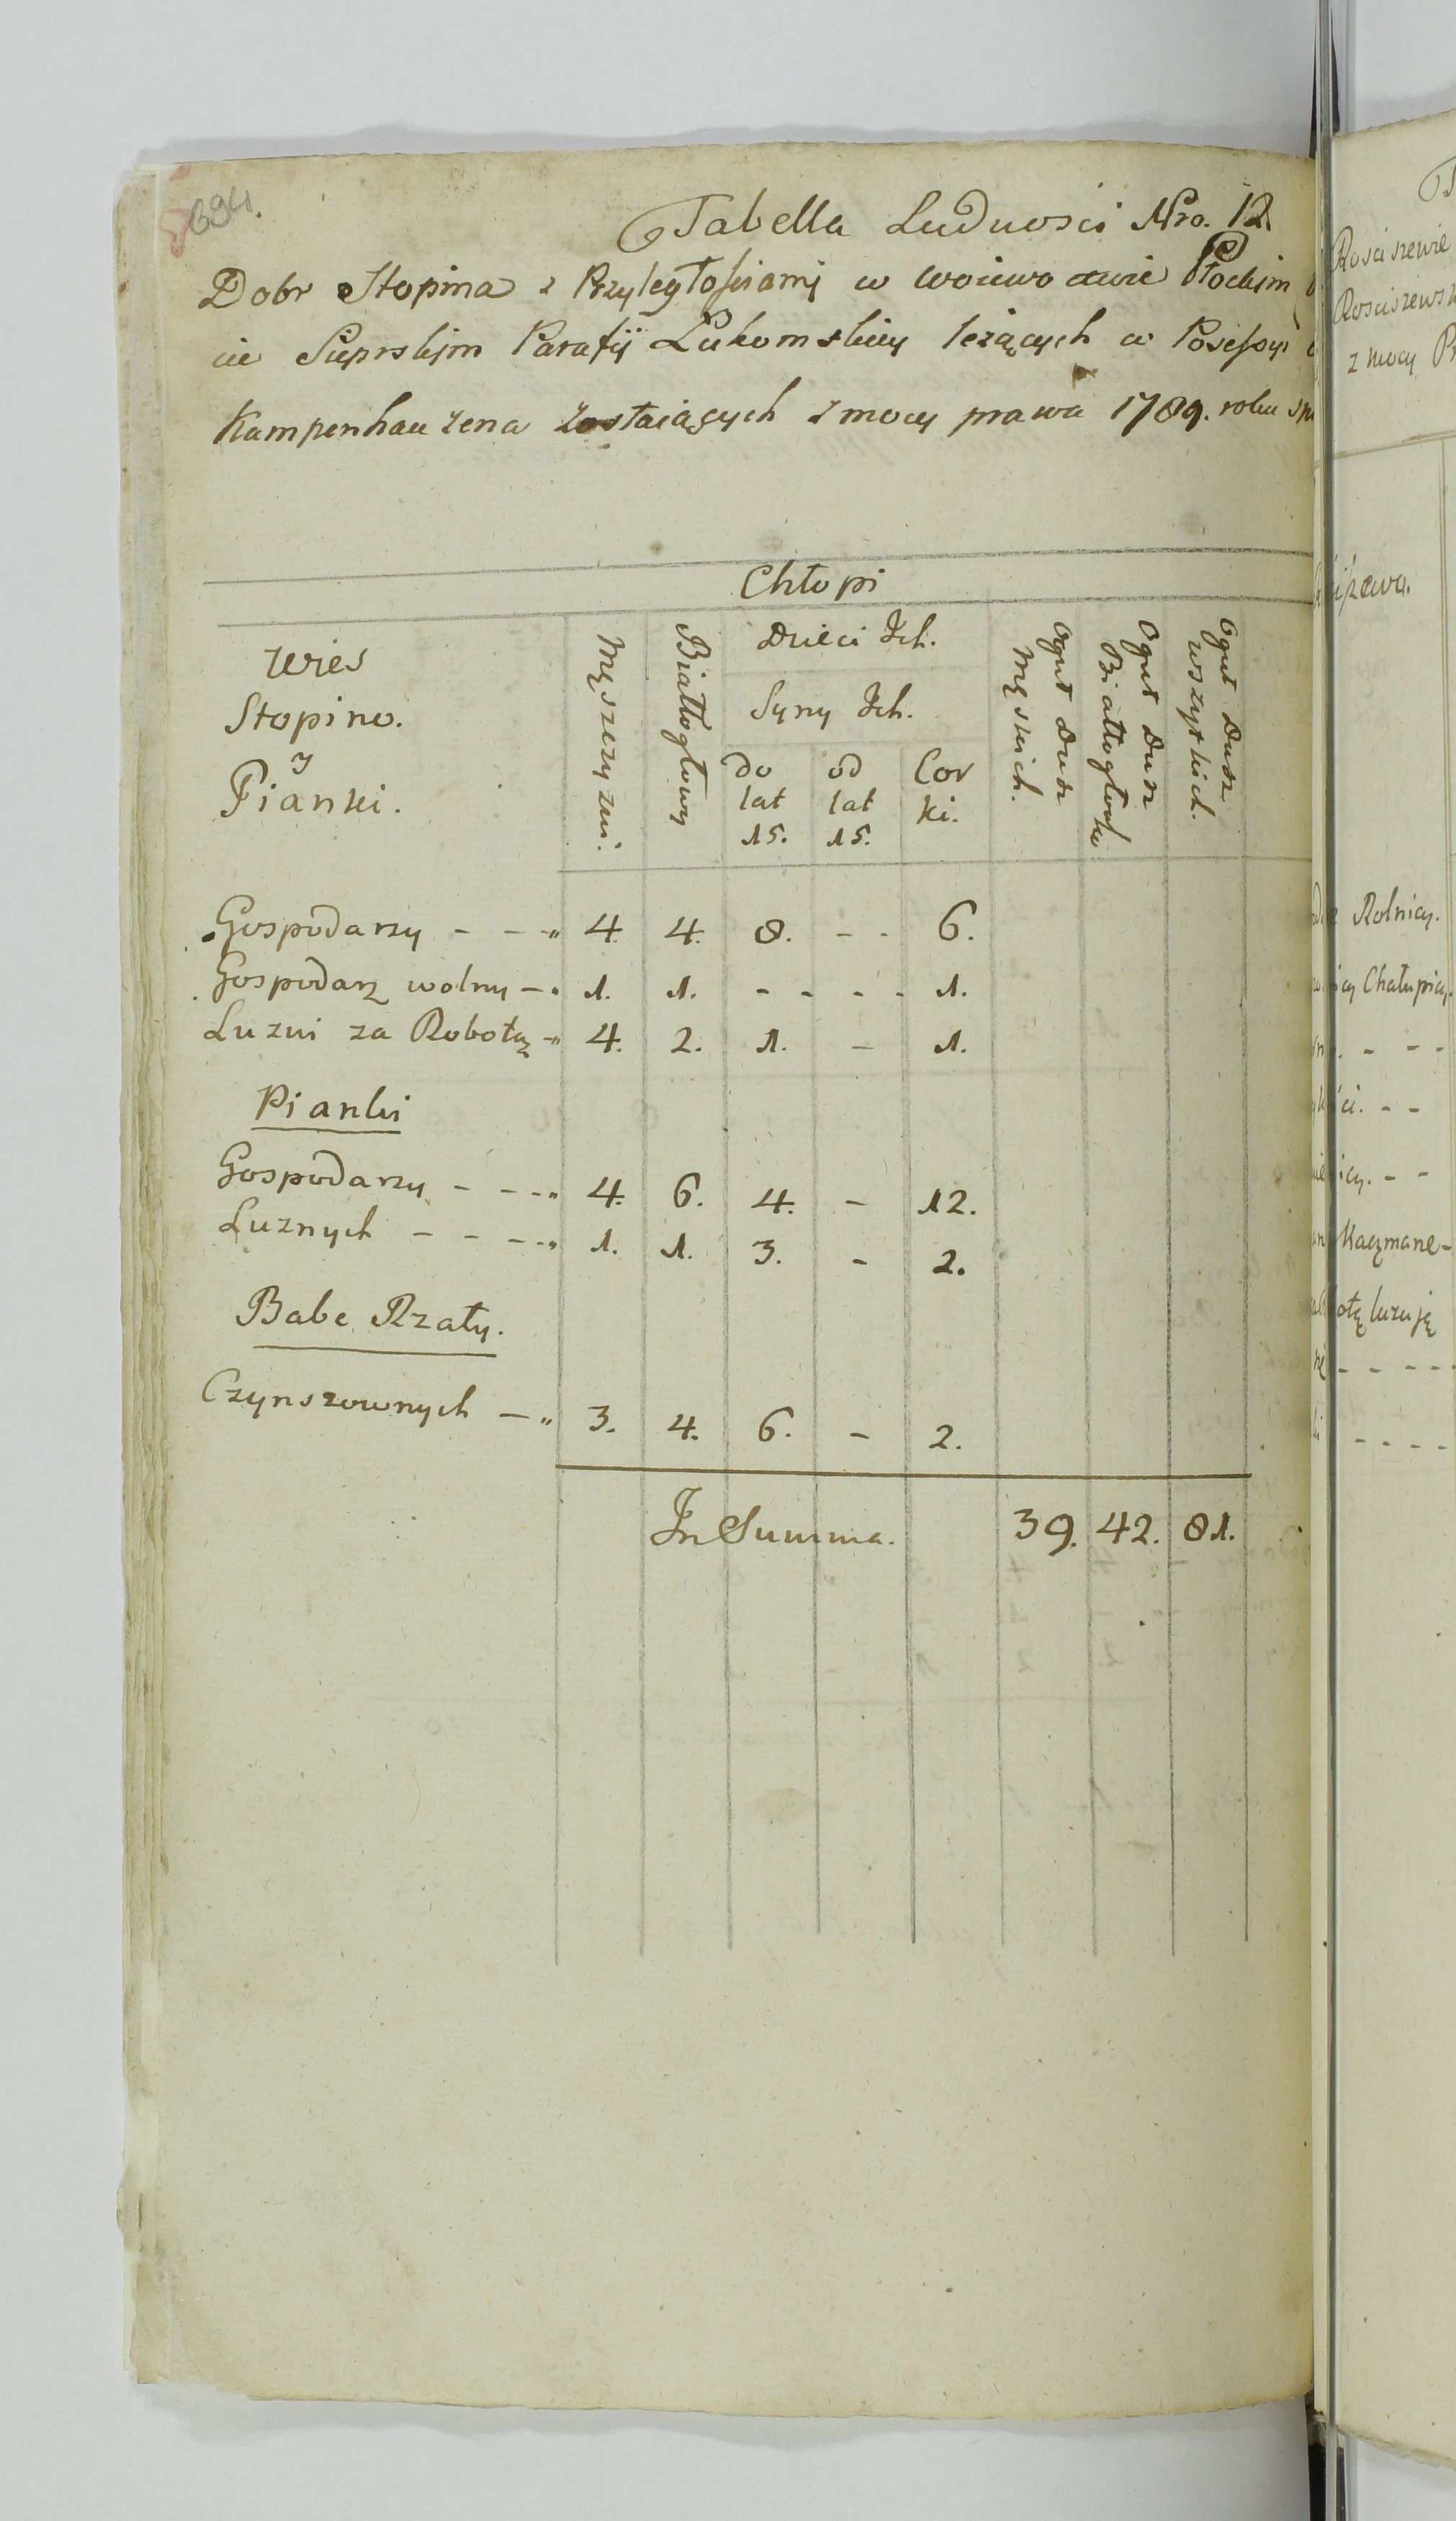 694.
Tabella Ludnosci Nro. 12.
Dobr Stopina z Przyległościamy w Woiewodzwie Płockim
cie Sieprskim Parafij Łukomskiey leżących w Posessyi
Kampenhauzena zostaiących z mocy prawa 1789. roku
Chłopi
Wies
Stopino.
J
Pianki.
Męszczyzni.
Białłogłowy
Dzieci Jch.
Syny Jch.
do lat 15.
od lat 15.
Corki.
Oguł Dusz Męskich.
Oguł Dusz Białłogłosk
Oguł Dusz wszytkich.
Gospodarzy - - - „ 4. 4. 8. - - 6.
Gospodarz wolny - „ 1. 1. - - - - 1.
Luzni za Robotą - „ 4. 2. 1. - 1.
Pianki
Gospodarzy - - - „ 4. 6. 4. - 12.
Luznych - - - - „ 1. 1. 3. - 2.
Babe Rzały.
Czynszownych - „ 3. 4. 6. - 2.
Jn Summa. 39. 42. 81.
Rosciszewie
z mocy
Rolnicy.
Chałupicy.